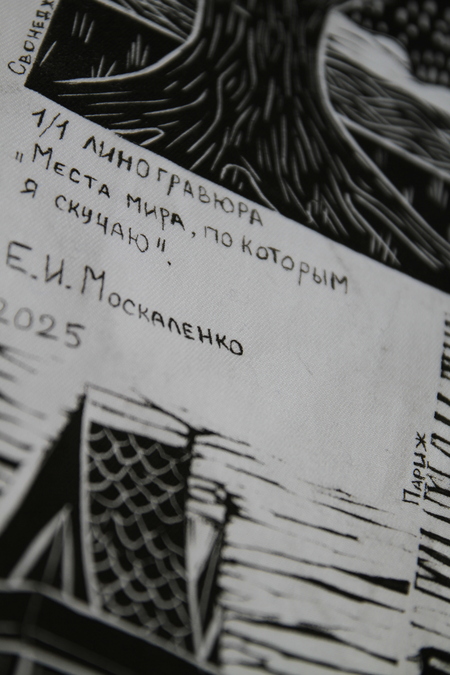 1/1 ЛИНОГРАВЮРА
"МЕСТА МИРА, ПО КОТОРЫМ
Я СКУЧАЮ".
Е.И. МОСКАЛЕНКО
2025
ПАРИЖ